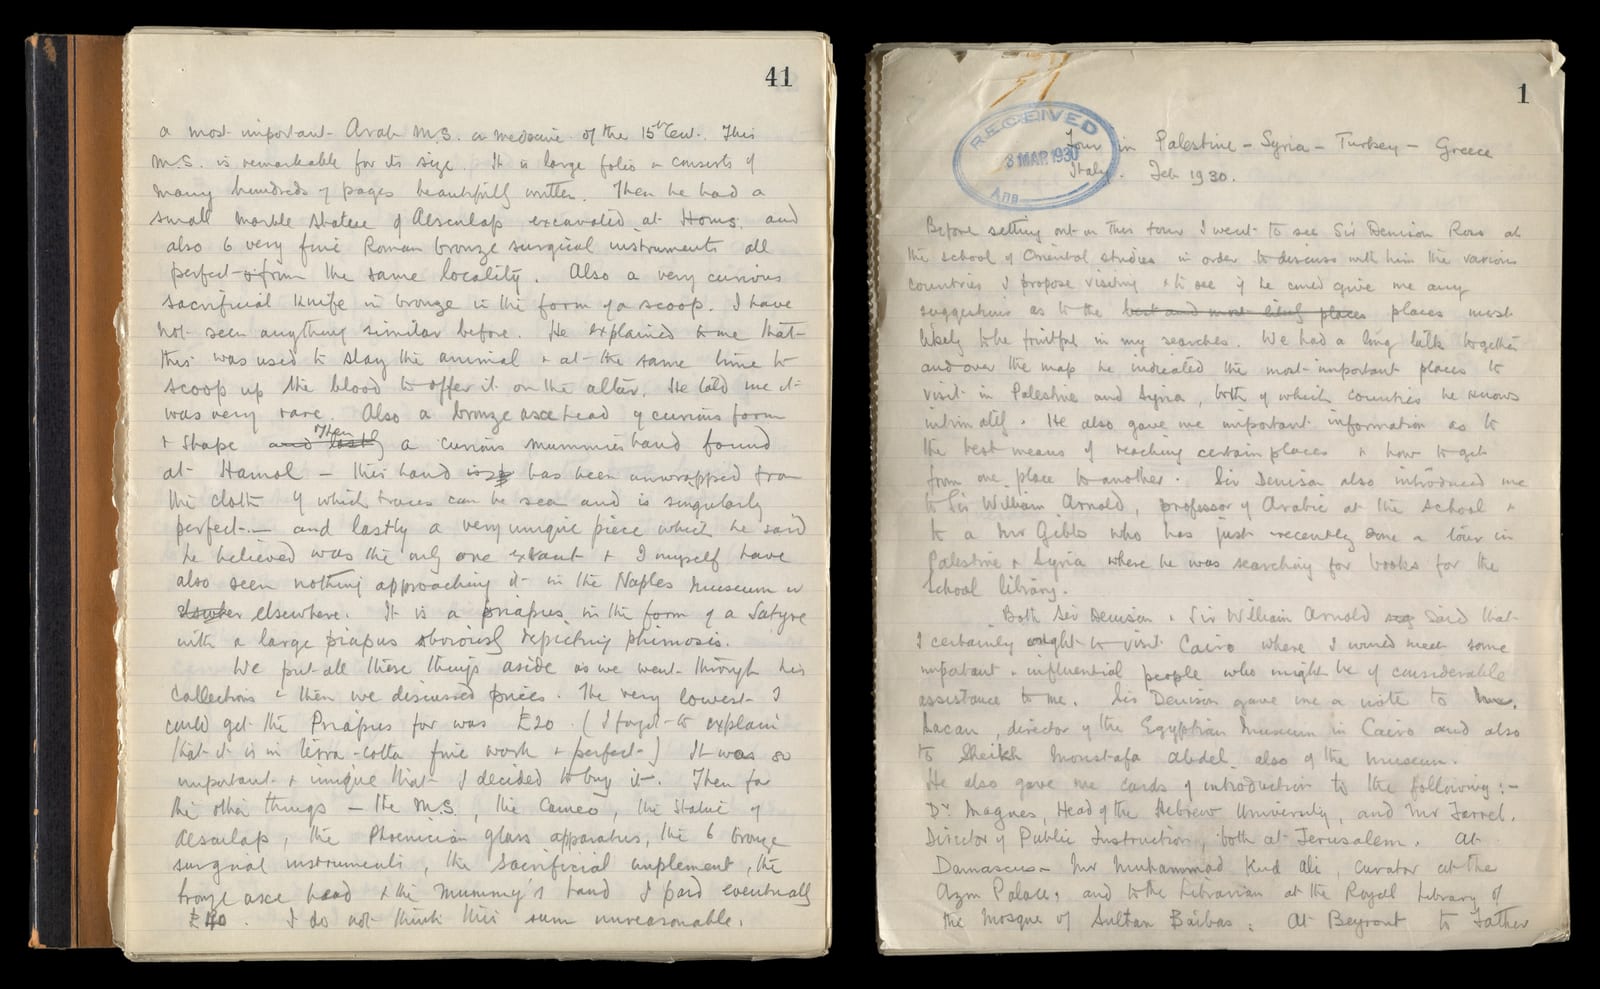 41
a most important Arab M.S. on medecine of the 15th Cent. This
M.S. is remarkable for its size. It is large folio & consists of
many hundreds of pages beautifully written. Then he had a
small marble statue of Aesculap excavated at Homs. and
also 6 very fine Roman bronze surgical instruments all
perfect & from the same locality. Also a very curious
sacrificial knife in bronze in the form of a scoop. I have
not seen anything similar before. He explained to me that
this was used to slay the animal & at the same time to
scoop up the blood to offer it on the altar. He told me it
was very rare. Also a bronze axe head of curious form
& shape and lastly Then a curious mummies hand found
at Hamol – this hand is has been unwrapped from
the cloth of which traces can be seen and is singularly
perfect — and lastly a very unique piece which he said
he believed was the only one extant & I myself have
also seen nothing approaching it in the Naples Museum or
elsewhere. It is a priapus in the form of a Satyre
with a large priapus obviously depicting phimosis.
We put all these things aside as we went through his
collections & then we discussed prices. The very lowest I
could get the Priapus for was £20. (I forgot to explain
that it is in terra-cotta fine work & perfect) It was so
important & unique that I decided to buy it. Then for
the other things – the M.S., the Cameo, the statue of
Aesculap, the Phoenician glass apparatus, the 6 bronze
surgical instruments, the sacrificial implement, the
bronze axe head & the Mummy's hand I paid eventually
I do not think this sum unreasonable.
1
RECEIVED
8 MAR 1930
Ans
Tour in Palestine – Syria – Turkey – Greece
Italy. Feb 1930.
Before setting out on this tour I went to see Sir Denison Ross at
the school of Oriental studies in order to discuss with him the various
countries I propose visiting & to see if he could give me any
suggestions as to the best and most likely places places most
likely to be fruitful in my searches. We had a long talk together
and over the map he indicated the most important places to
visit in Palestine and Syria, both of which countries he knows
intimately. He also gave me important information as to
the best means of reaching certain places & how to get
from one place to another. Sir Denison also introduced me
to Sir William Arnold, professor of Arabic at the school &
to a Mr Gibbs who has just recently done a tour in
Palestine & Syria where he was searching for books for the
School library.
Both Sir Denison & Sir William Arnold said that
I certainly ought to visit Cairo where I would meet some
important & influential people who might be of considerable
assistance to me. Sir Denison gave me a note to Mr.
Lacau, director of the Egyptian Museum in Cairo and also
to Sheikh Moustafa abdel also of the museum.
He also gave me cards of introduction to the following:–
Dr Magnes, Head of the Hebrew University, and Mr Farrel,
Director of Public Instruction, both at Jerusalem. At
Damascus – Mr Muhammad Kurd Ali, curator at the
Azm Palace, and to the Librarian at the Royal Library of
the Mosque of Sultan Baibas. At Beyrout to Father